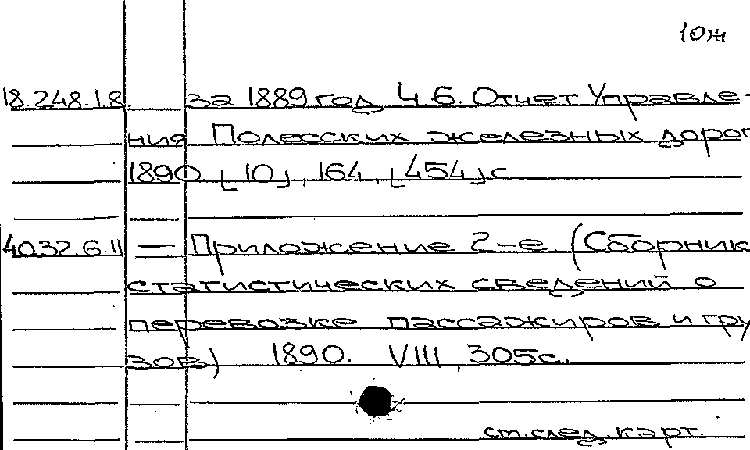 10ж
18.248.1.8. за 1889 год Ч.6. Отчет Управле-
ния Полесских железных дорог
1890 [10], 164, [454] с.
40.32.6.11 — Приложение 2-е. (Сборник
статистических сведений о
перевозке пассажиров и гру
зов) 1890. VIII, 305с.
см. след. карт.